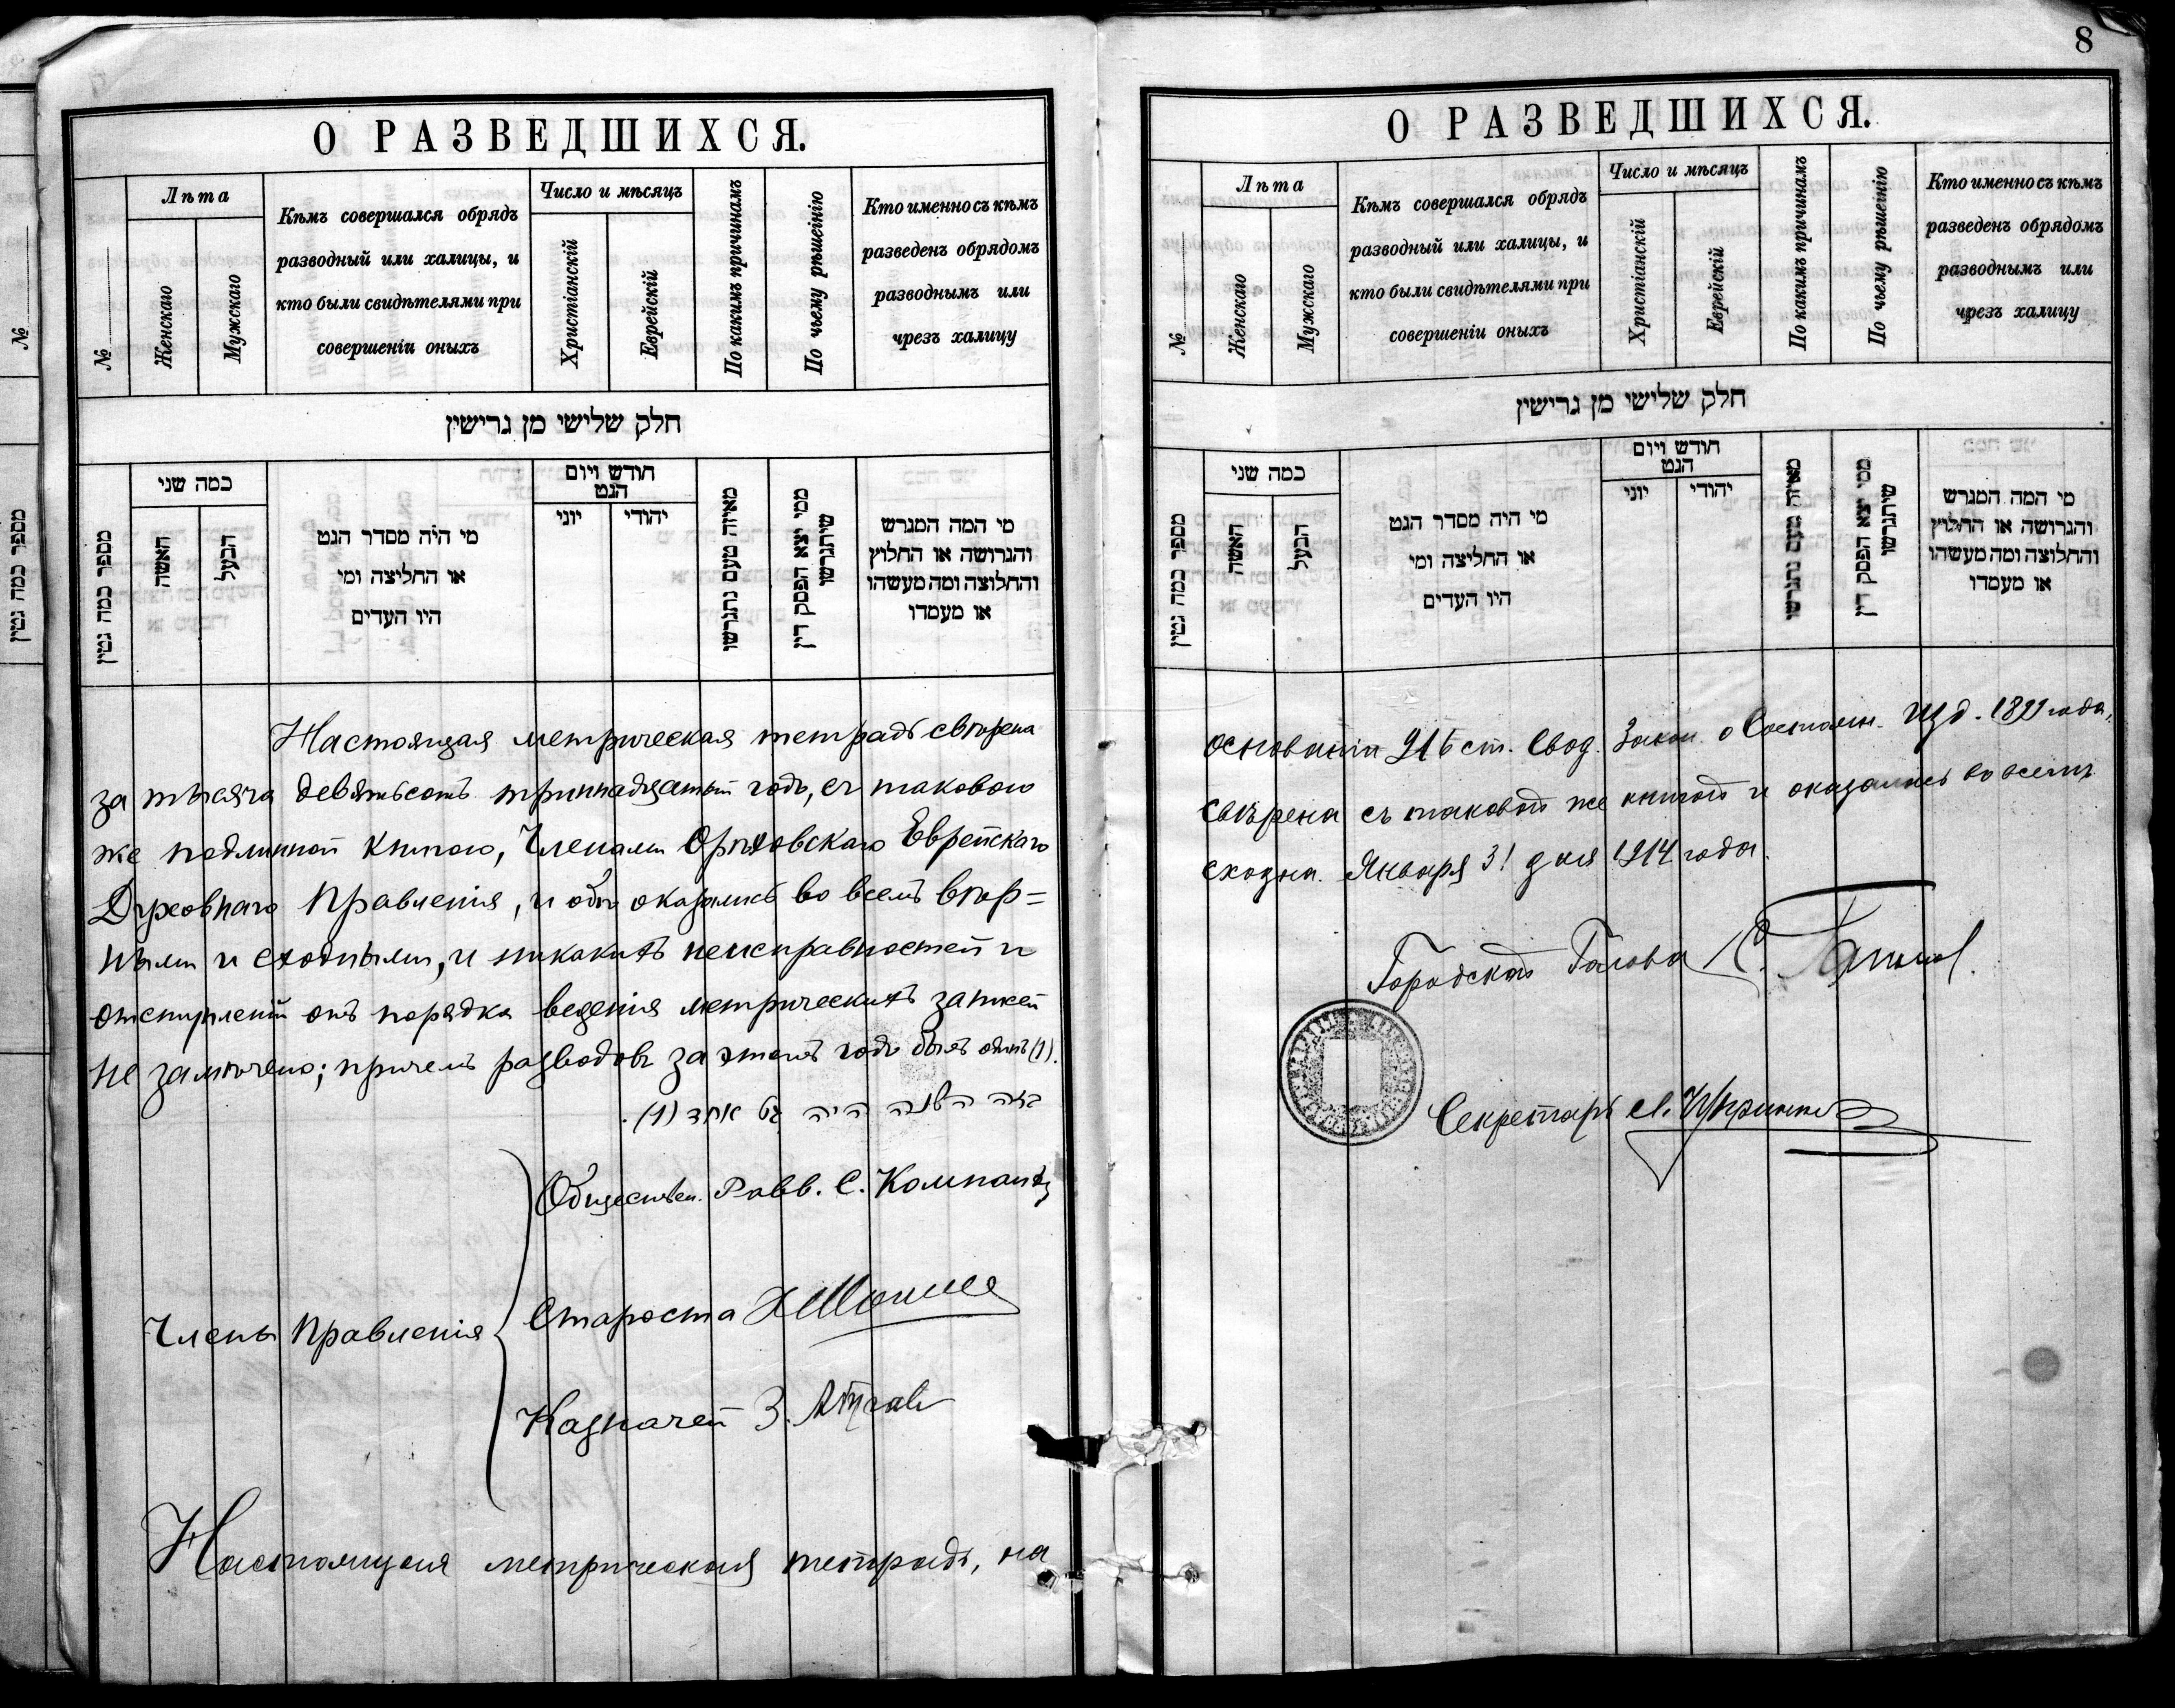 8
О РАЗВЕДШИХСЯ.
№
Лѣта
Женскаго
Мужскаго
Кѣмъ совершался обрядъ
разводный или халицы, и
кто были свидѣтелями при
совершеніи оныхъ
Число и мѣсяцъ
Христіанскій
Еврейскій
По какимъ причинамъ
По чьему рѣшенію
Кто именно съ кѣмъ
разведенъ обрядомъ
разводнымъ или
чрезъ халицу
חלק שלישי מן גרישין
מספר כמה גטין
כמה שני
האשה
הבעל
מי היה מסדר הגט
או החליצה ומי
היו העדים
חודש ויום
הגט
יוני
יהודי
מאיזה טעם נתגרשו
ממי יצא הפסק דין
שיתגרשו
מי המה המגרש
והגרושה או החלוץ
והחלוצה ומה מעשהו
או מעמדו
Настоящая метрическая тетрадь свѣрена
за тысяча девятьсотъ тринадцатый годъ, съ таковою
же подлинной книгою, Членами Орѣховскаго Еврейскаго
Духовнаго Правленія, и обѣ оказались во всемъ вѣр=
ными и сходными, и никакихъ неисправностей и
отступленій отъ порядка веденія метрическихъ записей
не замѣчено; причемъ разводовъ за этотъ годъ былъ одинъ (1).
בזה השנה היה גט אחד (1).
Члены Правленія
Обществен. Равв. С. Компанѣец
Староста
Казначей З.
Настоящая метрическая тетрадь, на
О РАЗВЕДШИХСЯ.
№
Лѣта
Женскаго
Мужскаго
Кѣмъ совершался обрядъ
разводный или халицы, и
кто были свидѣтелями при
совершеніи оныхъ
Число и мѣсяцъ
Христіанскій
Еврейскій
По какимъ причинамъ
По чьему рѣшенію
Кто именно съ кѣмъ
разведенъ обрядомъ
разводнымъ или
чрезъ халицу
חלק שלישי מן גרישין
מספר כמה גטין
כמה שני
האשה
הבעל
מי היה מסדר הגט
או החליצה ומי
היו העדים
חודש ויום
הגט
יוני
יהודי
מאיזה טעם נתגרשו
ממי יצא הפסק דין
שיתגרשו
מי המה המגרש
והגרושה או החלוץ
והחלוצה ומה מעשהו
או מעמדו
основаніи 916 ст. Свод. Закон. о Состоян. изд. 1899 года,
свѣрена съ таковой же книгой и оказалась во всемъ
сходна. Января 31 дня 1914 года.
Городской Голова
Секретарь
№
מספר כמה גטין